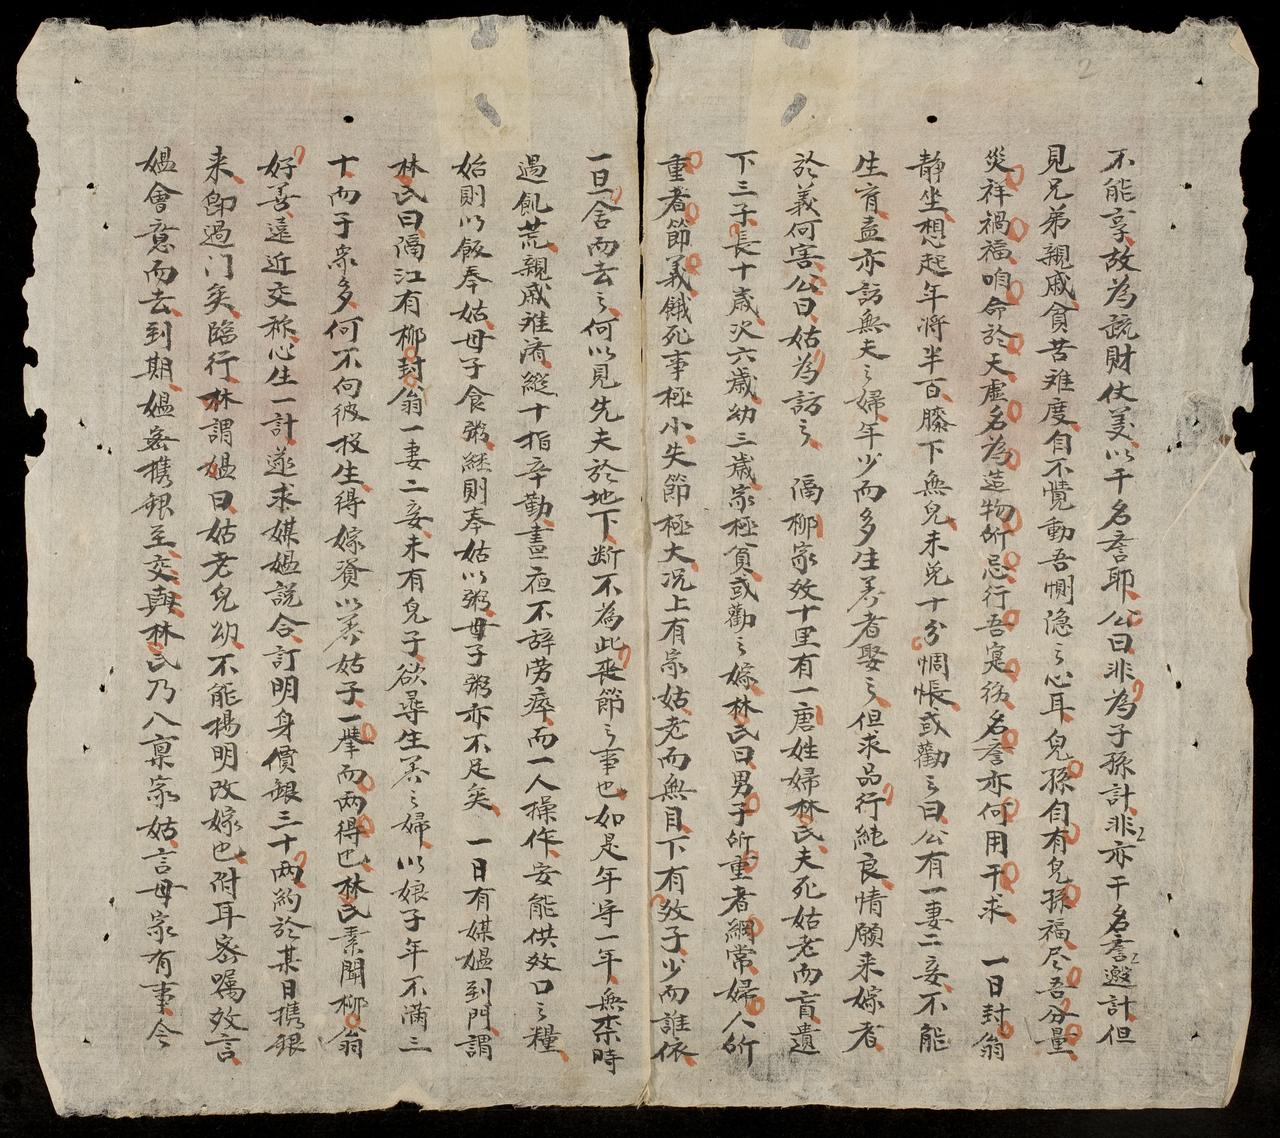 不能享故為疏財仗美以干名譽耶公曰非為子孫計非亦干名譽邀計但
見兄弟親戚貧苦难度自不覺動吾惻隐之心耳兒孫自有兒孫福尽吾分量
災祥禍福咱命於天虛名為造物所忌行吾寔徳名譽亦何用干求 一日封翁
静坐想起年将半百膝下無兒未免十分惆悵或勸之曰公有一妻二妾不能
生育盍亦訪無夫之婦年少而多生养者娶之但求品行純良情願来嫁者
於義何害公曰姑為訪之 隔柳家效十里有一唐姓婦林氏夫死姑老而盲遺
下三子長十歳次六歳幼三歳家極貧或勸之嫁林氏曰男子所重者綱常婦人所
重者節義餓死事極小失節極大况上有家姑老而無目下有效子少而誰依
一旦舍而去之何以見先夫於地下断不為此丧節之事也如是年守一年無柰時
過飢荒親戚难濟縱十指辛勤晝夜不辞劳瘁而一人操作安能供效口之糧
始則以飯奉姑母子食粥継則奉姑以粥母子粥亦不足矣 一日有媒媼到門謂
林氏曰隔江有柳封翁一妻二妾未有兒子欲尋生养之婦以娘子年不满三
十而子衆多何不向彼投生得嫁資以养姑子一舉而两得也林氏素聞柳翁
好善遠近交称心生一計遂求媒媼説合訂明身價銀三十两約於某日携銀
来即過门矣臨行林謂媼曰姑老兒幼不能揚明改嫁也附耳密嘱效言
媼會意而去到期媼密携銀至交與林氏乃入禀家姑言母家有事今